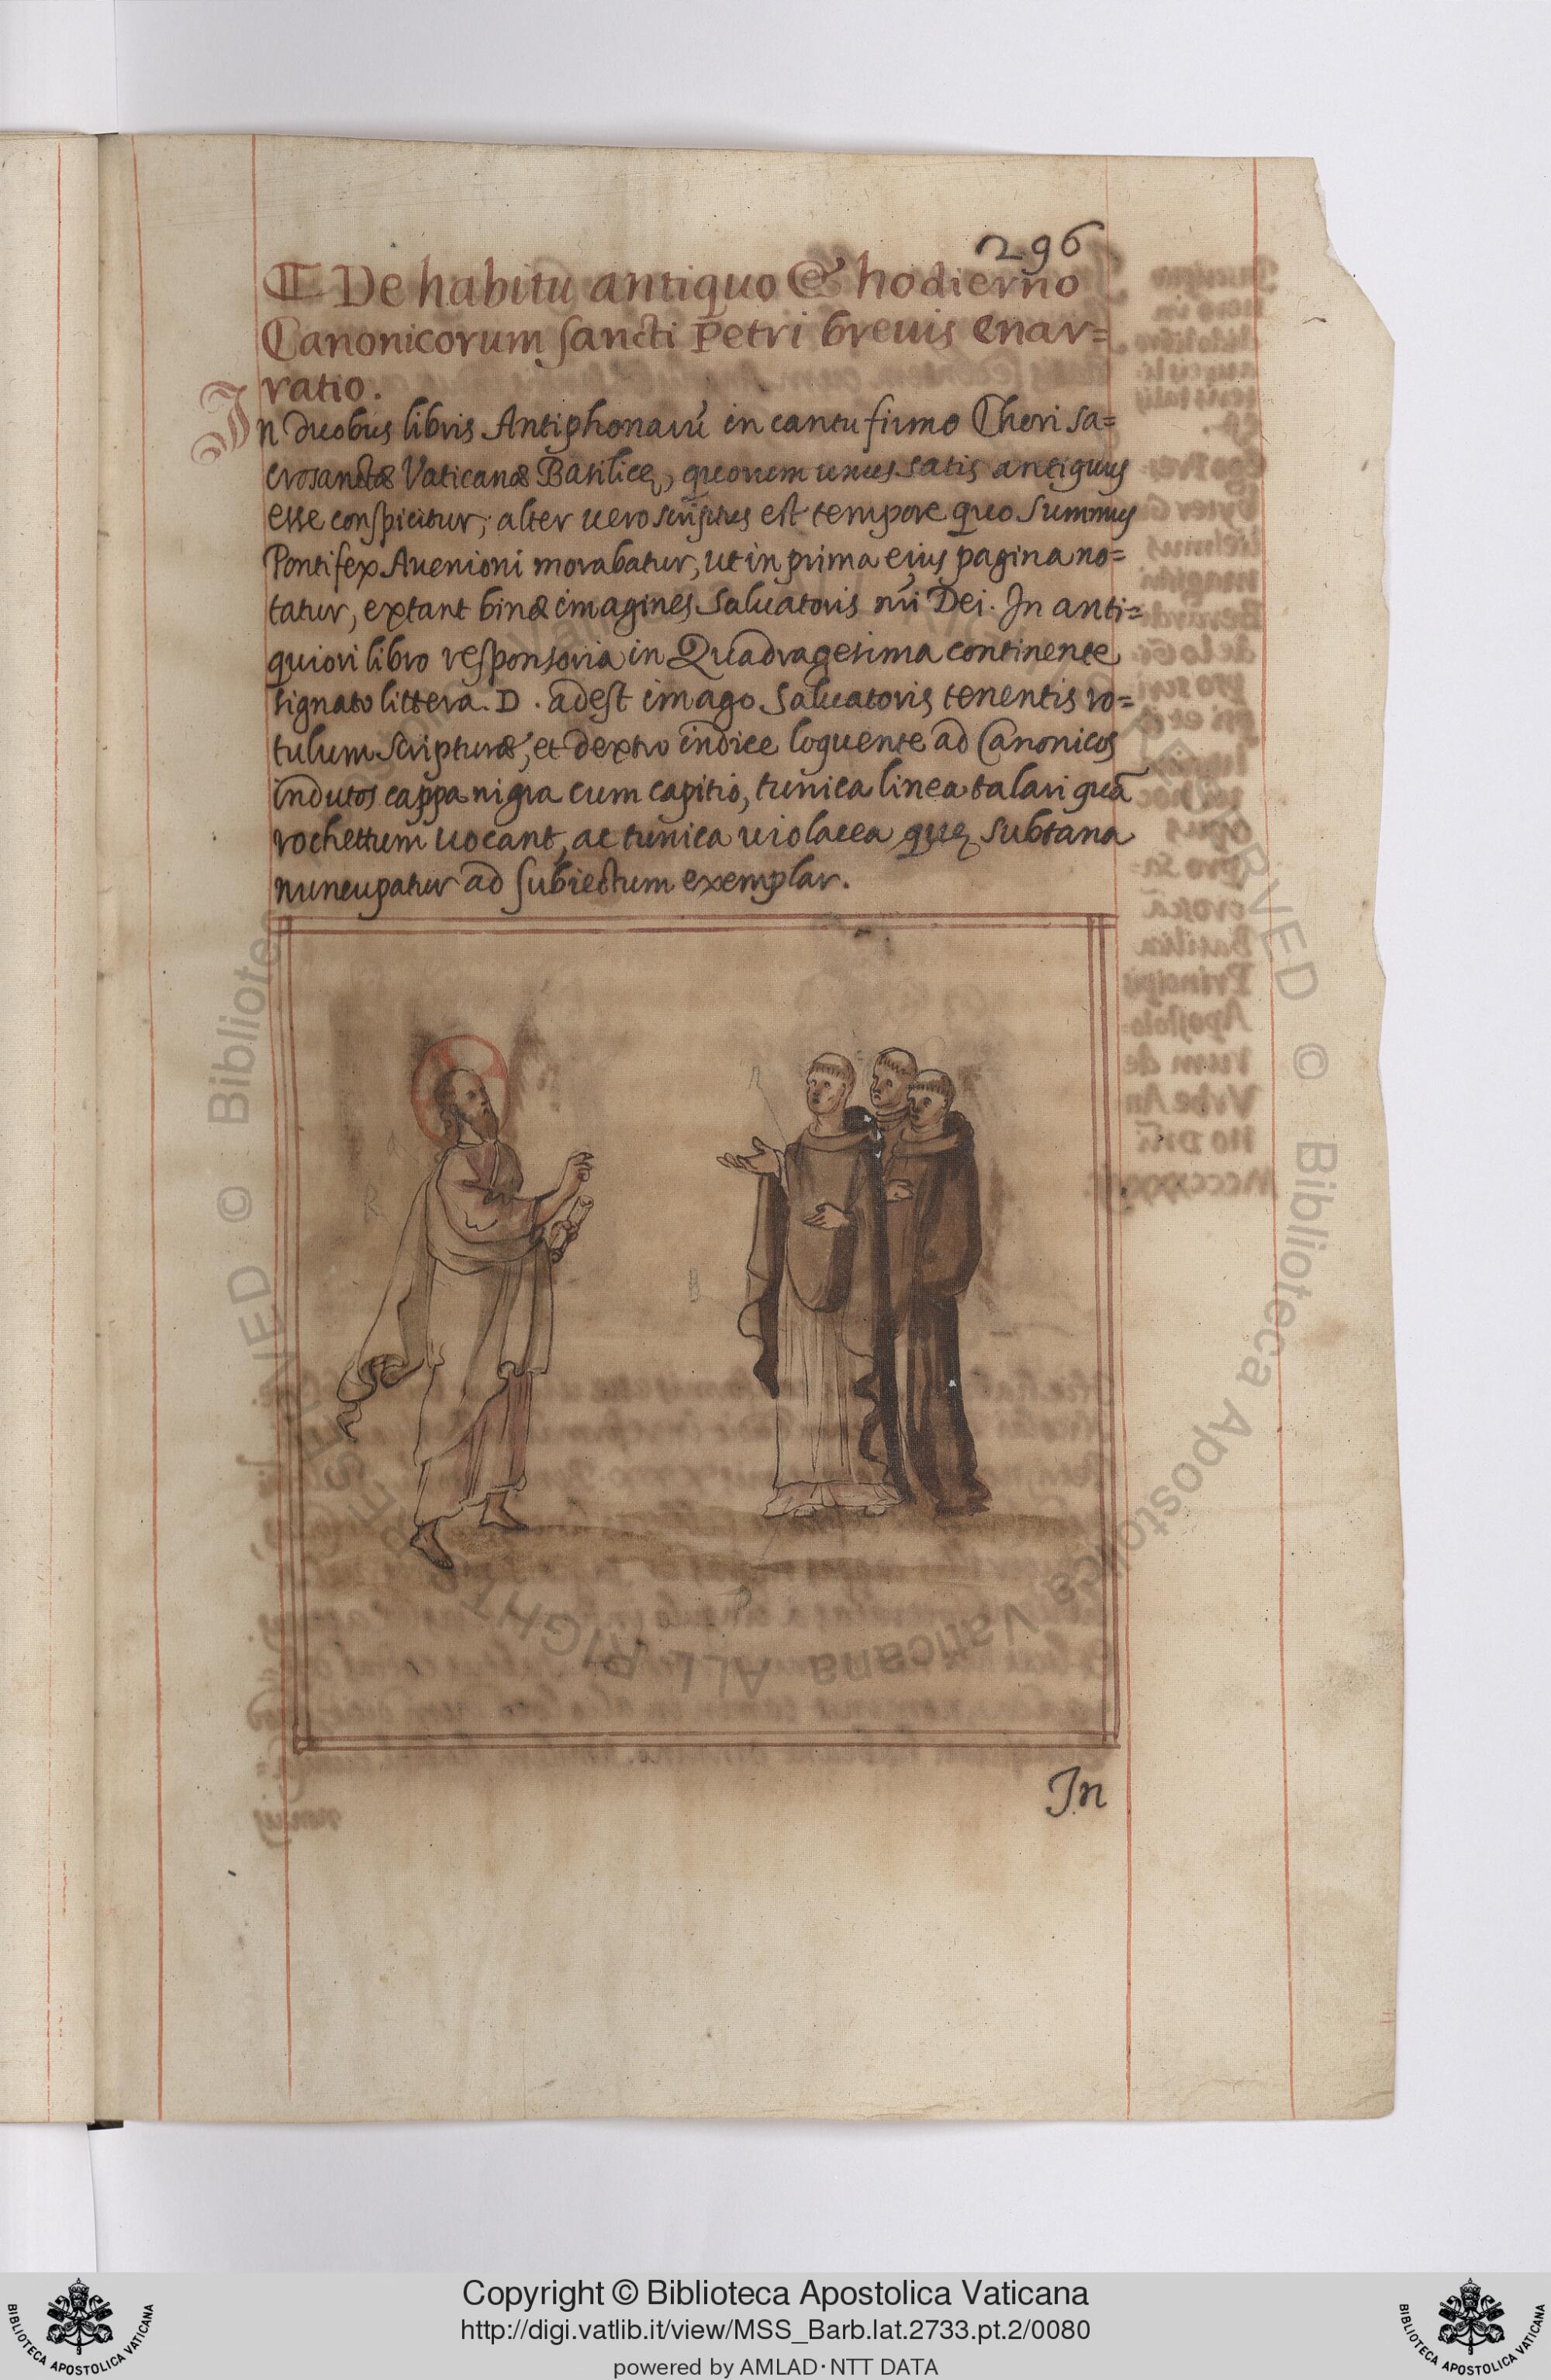 296
¶ De habitu antiquo & hodierno
Canonicorum sancti Petri breuis enar=
ratio.
In duobus libris Antiphonarũ in cantu firmo Chori sa=
crosanctæ Vaticanæ Basilicę, quorum unus satis antiquus
esse conspicitur, alter uero scriptus est tempore quo Summus
Pontifex Auenioni morabatur, ut in prima eius pagina no=
tatur, extant binæ imagines Saluatoris nr̃i Dei. In anti=
quiori libro responsoria in Quadragesima continente
signato littera. D. adest imago Saluatoris tenentis ro=
tulum scripturæ, et dextro indice loquente ad Canonicos
indutos cappa nigra cum capitio, tunica linea talari quã
rochettum uocant, ac tunica uiolacea quę subtana
nuncupatur ad subiectum exemplar.
R
R
B
P
In
Copyright © Biblioteca Apostolica Vaticana
http://digi.vatlib.it/view/MSS_Barb.lat.2733.pt.2/0080
powered by AMLAD·NTT DATA
BIBLIOTECA APOSTOLICA VATICANA
BIBLIOTECA APOSTOLICA VATICANA